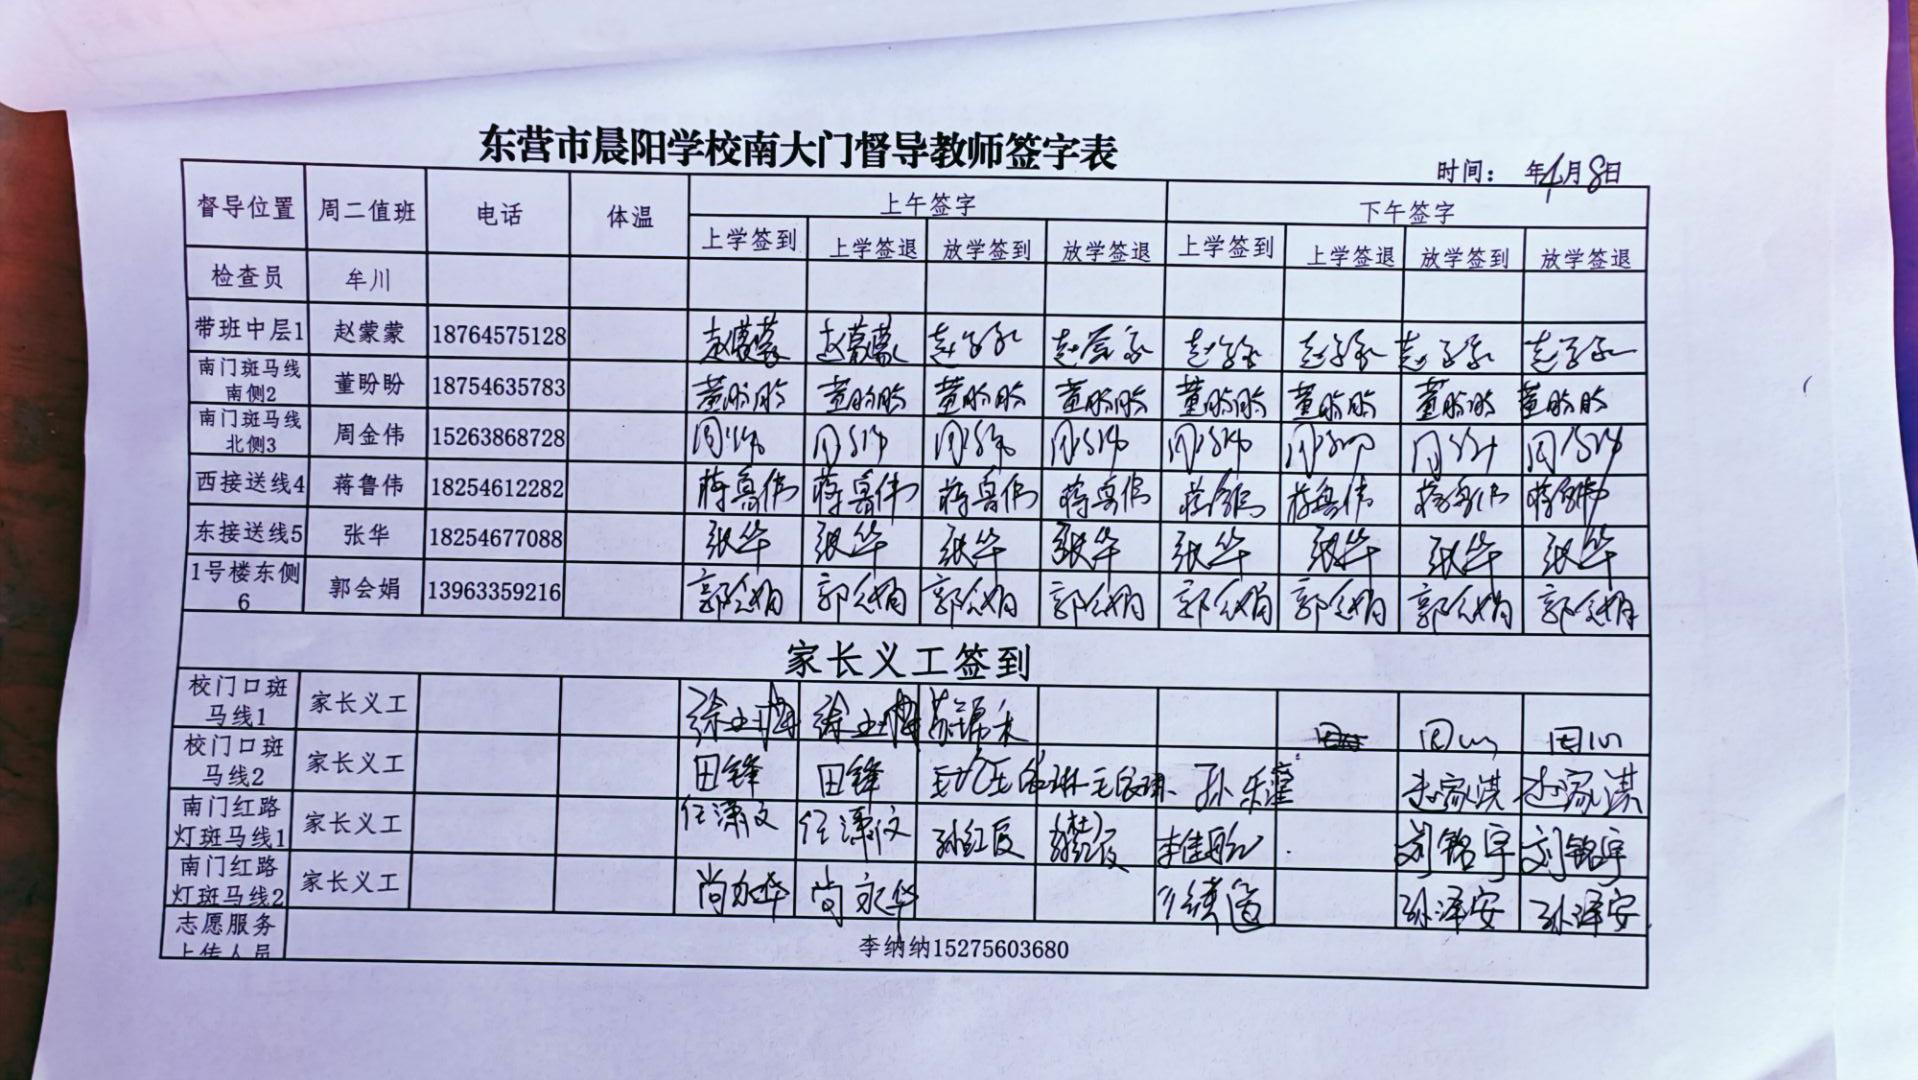 东营市晨阳学校南大门督导教师签字表
时间： 年4月8日
督导位置 周二值班 电话 体温 上午签字 下午签字
上学签到 上学签退 放学签到 放学签退 上学签到 上学签退 放学签到 放学签退
检查员 牟川
带班中层1 赵蒙蒙 18764575128 赵蒙蒙 赵蒙蒙 赵蒙蒙 赵蒙蒙 赵蒙蒙 赵蒙蒙 赵蒙蒙 赵蒙蒙
南门斑马线
南侧2 董盼盼 18754635783 董盼盼 董盼盼 董盼盼 董盼盼 董盼盼 董盼盼 董盼盼 董盼盼
南门斑马线
北侧3 周金伟 15263868728 周金伟 周金伟 周金伟 周金伟 周金伟 周金伟 周金伟 周金伟
西接送线4 蒋鲁伟 18254612282 蒋鲁伟 蒋鲁伟 蒋鲁伟 蒋鲁伟 蒋鲁伟 蒋鲁伟 蒋鲁伟 蒋鲁伟
东接送线5 张华 18254677088 张华 张华 张华 张华 张华 张华 张华 张华
1号楼东侧
6 郭会娟 13963359216 郭会娟 郭会娟 郭会娟 郭会娟 郭会娟 郭会娟 郭会娟 郭会娟
家长义工签到
校门口斑
马线1 家长义工
校门口斑
马线2 家长义工 田锋 田锋 赵家淇 赵家淇
南门红路
灯斑马线1 家长义工 任潇文 任潇文 刘铭宇 刘铭宇
南门红路
灯斑马线2 家长义工 尚永华 尚永华 孙泽安 孙泽安
志愿服务
上传人员 李纳纳15275603680